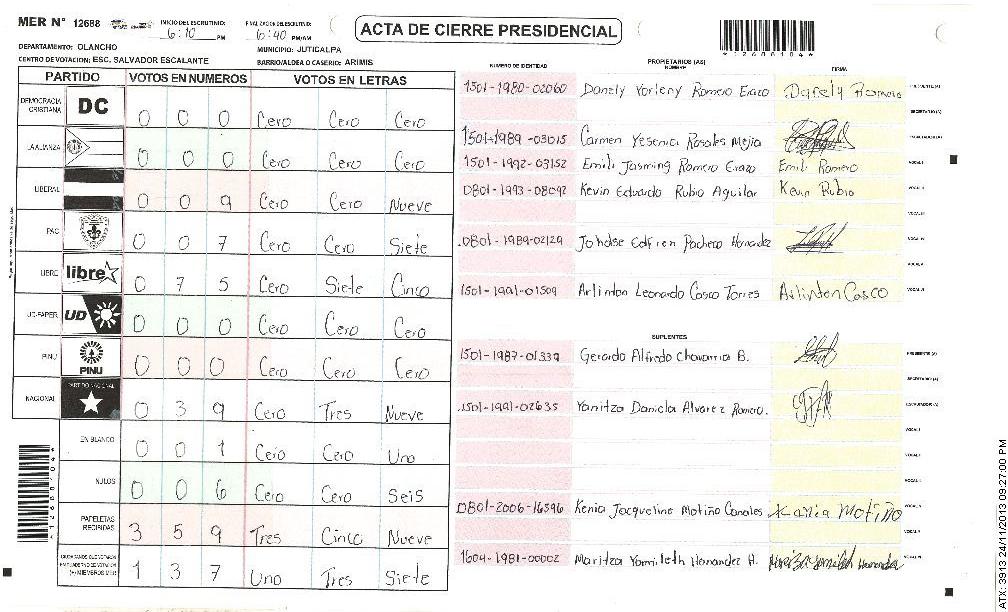 MER N° 12688
INICIO DEL ESCRUTINIO: 6:10 PM
FINALIZACION DEL ESCRUTINIO: 6:40 PM/AM
ACTA DE CIERRE PRESIDENCIAL
*12688104*
DEPARTAMENTO: OLANCHO
MUNICIPIO: JUTICALPA
CENTRO DE VOTACION: ESC. SALVADOR ESCALANTE
BARRIO/ALDEA O CASERIO: ARIMIS
PARTIDO VOTOS EN NUMEROS VOTOS EN LETRAS
DEMOCRACIA CRISTIANA DC 0 0 0 Cero Cero Cero
LA ALIANZA 0 0 0 Cero Cero Cero
LIBERAL 0 0 9 Cero Cero Nueve
PAC 0 0 7 Cero Cero Siete
LIBRE libre 0 7 5 Cero Siete Cinco
UD-FAPER UD 0 0 0 Cero Cero Cero
PINU PINU 0 0 0 Cero Cero Cero
NACIONAL PARTIDO NACIONAL 0 3 9 Cero Tres Nueve
EN BLANCO 0 0 1 Cero Cero Uno
NULOS 0 0 6 Cero Cero Seis
PAPELETAS RECIBIDAS 3 5 9 Tres Cinco Nueve
CIUDADANOS QUE VOTARON EN CUADERNO DE VOTACION (+) MIEMBROS MER 1 3 7 Uno Tres Siete
*12688104*
NUMERO DE IDENTIDAD PROPIETARIOS (AS) NOMBRE FIRMA
1501-1980-02060 Danely Yorleny Romero Erazo Danely Romero PRESIDENTE (A)
SECRETARIO (A)
1501-1989-03015 Carmen Yesenia Rosales Mejia ESCRUTADOR (A)
1501-1992-03152 Emili Jasming Romero Erazo Emili Romero VOCAL I
0801-1993-08092 Kevin Eduardo Rubio Aguilar Kevin Rubio VOCAL II
VOCAL III
0801-1989-02129 Pacheco Hernandez VOCAL IV
VOCAL V
1501-1991-01509 Arlinton Leonardo Cosco Torres Arlinton Casco VOCAL VI
SUPLENTES
1501-1987-01339 Gerardo Alfredo Chavarria B. PRESIDENTE (A)
SECRETARIO (A)
1501-1991-02635 Yanitza Daniela Alvarez Romero. ESCRUTADOR (A)
VOCAL I
VOCAL II
VOCAL III
0801-2006-16596 Kenia Jacqueline Motiño Canales Kenia Motiño VOCAL IV
VOCAL V
1604-1981-00002 Maritza Yamileth Hernandez H. Maritza Yamileth Hernandez VOCAL VI
ATX: 3913 24/11/2013 09:27:00 PM